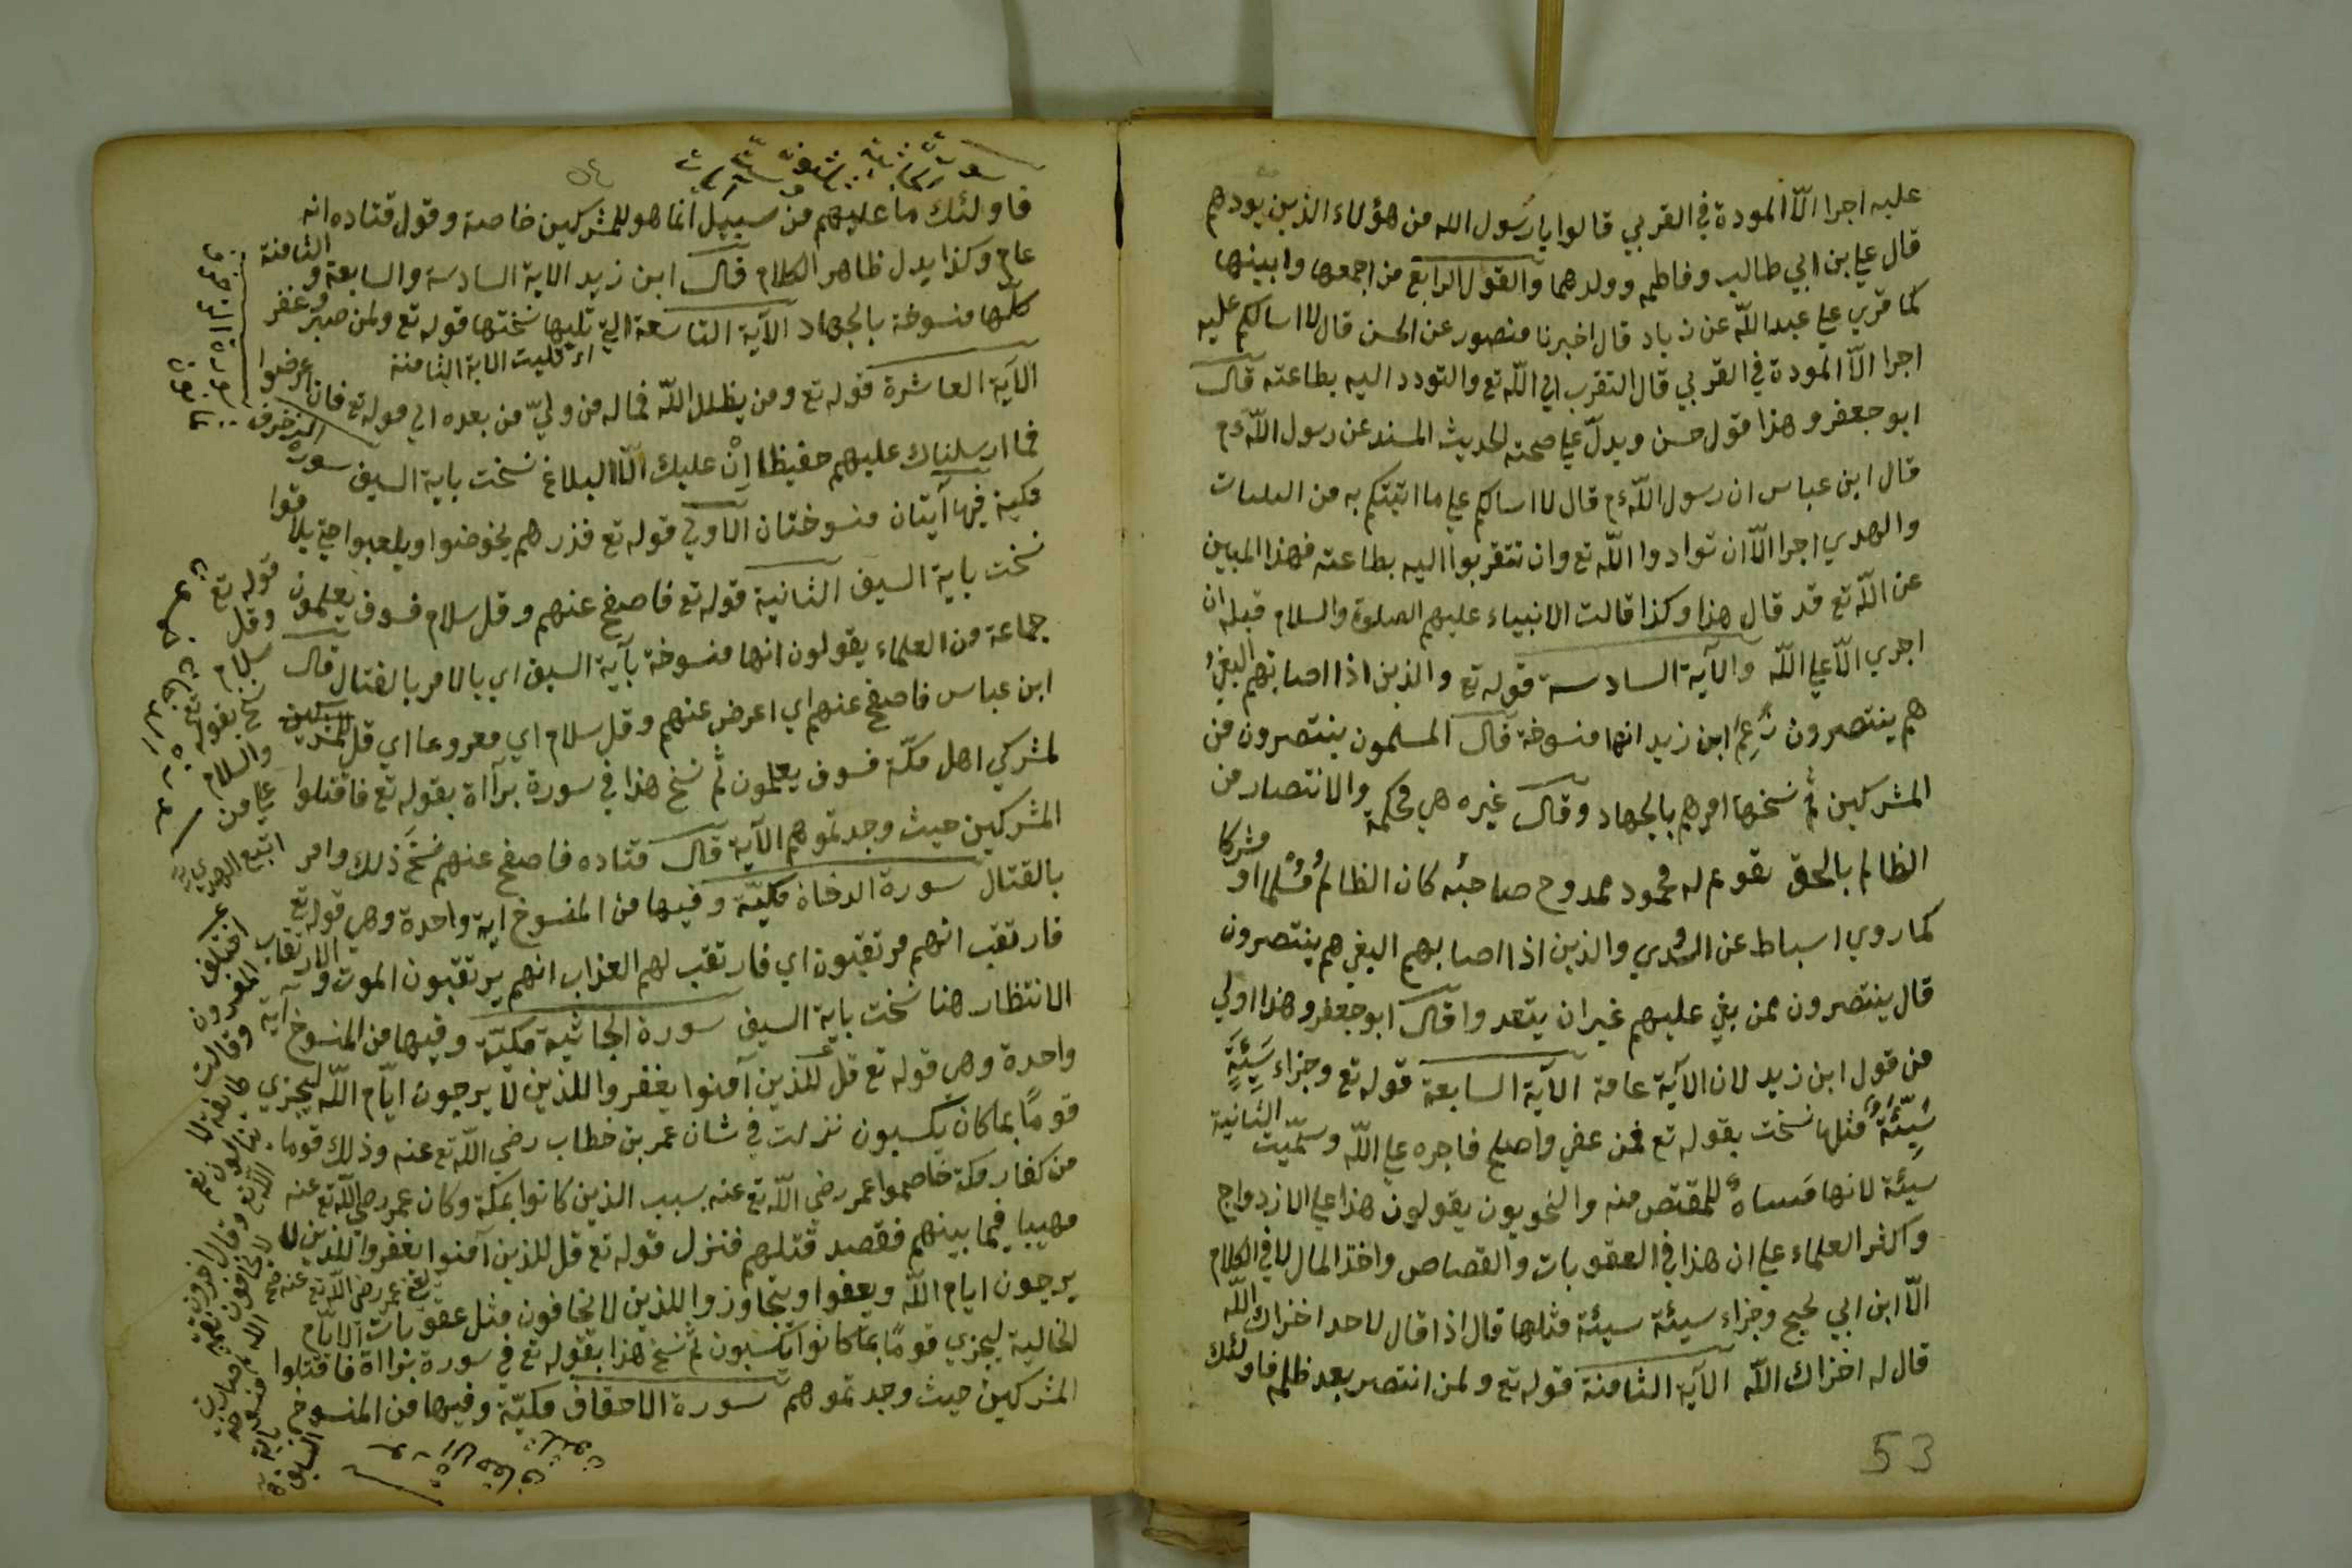 عليه اجرا الّا المودة في القربي قالوا يا رسول الله من هؤلاء الذين يودهم
قال علي بن ابي طالب وفاطمه وولدهما والقول الرابع من اجمعها وابينها
كما قري علي عبد اللّه عن زياد قال اخبرنا منصور عن الحسن قال لا اسالكم عليه
اجرا الّا المودة في القربي قال التقرب الي اللّه تع والتودد اليه بطاعته قال
ابو جعفر وهذا قول حسن ويدلّ علي صحته الحديث المسند عن رسول اللّه ءم
قال ابن عباس ان رسول اللّه ءم قال لا اسالكم علي ما اتيتكم به من البينات
والهدي اجرا الّا ان توادوا اللّه تع وان تتقربوا اليه بطاعته فهذا المبين
عن اللّه تع قد قال هذا وكذا قالت الانبياء عليهم الصلوة والسلام قبله ان
اجري الّا علي اللّه والآية السادسة قوله تع والذين اذا اصابتهم البغي
هم ينتصرون زعم ابن زيد انها منسوخة قال المسلمون ينتصرون من
المشركين ثم نسخها امرهم بالجهاد وقال غيره هي محكمة والانتصار من
الظالم بالحق تقويم له محمود ممدوح صاحبه كان الظالم مسلما او مشركا
كما روي اسباط عن السدي والذين اذا اصابهم البغي هم ينتصرون
قال ينتصرون ممن بغي عليهم غير ان يتعدوا قال ابو جعفر وهذا اولي
من قول ابن زيد لان الآية عامة الآية السابعة قوله تع وجزاء سَيِّئَةٍ
سَيِّئَةٌ مثلها نسخت بقوله تع فمن عفي واصلح فاجره علي اللّه وسمّيت الثانية
سيئة لانها مساءة للمقتص منه والنحويون يقولون هذا علي الازدواج
واكثر العلماء علي ان هذا في العقوبات والقصاص واخذ المال لا في الكلام
الّا ابن ابي نجيح وجزاء سيئة سيئة مثلها قال اذا قال لاحد اخزاك اللّه
قال له اخزاك اللّه الآية الثامنة قوله تع ولمن انتصر بعد ظلمه فاولئك
53
٥٤
فاولئك ما عليهم من سبيل انما هو للمشركين خاصة وقول قتاده انه
عام وكذا يدل ظاهر الكلام قال ابن زيد الاية السادسة والسابعة و الثامنة
كلها منسوخة بالجهاد الآية التاسعة التي تليها نسختها قوله تع ولمن صبر وغفر
اي تليت الاية الثامنة
الآية العاشرة قوله تع ومن يظلل اللّه فما له من وليّ من بعده الي قوله تع فان اعرضوا
فما ارسلناك عليهم حفيظا انْ عليك الّا البلاغ نسخت باية السيف سورة الزخرف
مكية فيها آيتان منسوختان الاولي قوله تع فذرهم يخوضوا ويلعبوا حتي يلاقوا
نسخت باية السيف الثانية قوله تع فاصفح عنهم وقل سلام فسوف يعلمون
جماعة من العلماء يقولون انها منسوخة بآية السيف اي بالامر بالقتال قال
ابن عباس فاصفح عنهم اي اعرض عنهم وقل سلام اي معروفا اي قل
لمشركي اهل مكّة فسوف يعلمون ثم نسخ هذا في سورة برآاة بقوله تع فاقتلوا
المشركين حيث وجدتموهم الآية قال قتاده فاصفح عنهم نسخ ذلك وامر
بالقتال سورة الدخان مكيّة وفيها من المنسوخ اية واحدة وهي قوله تع
فارتقب انهم مرتقبون اي فارتقب لهم العذاب انهم يرتقبون الموت و الارتقاب
الانتظار هنا نسخت باية السيف سورة الجاثية مكيّة وفيها من المنسوخ آية
واحدة وهي قوله تع قل للذين آمنوا يغفروا للذين لا يرجون ايّام اللّه ليجزي
قومًا بما كان يكسبون نزلت في شان عمر بن خطاب رضي اللّه تع عنه وذلك قوما
من كفار مكة خاصموا عمر رضي اللّه تع عنه بسبب الذين كانوا بمكّة وكان عمر رضي اللّه تع عنه
مهيبا فيما بينهم فقصد قتلهم فنزل قوله تع قل للذين آمنوا يغفروا للذين لا
يرجون ايام اللّه ويعفوا ويتجاوزوا للذين لا يخافون مثل عقوبات الايّام
الخالية ليجزي قومًا بما كانوا يكسبون ثم نسخ هذا بقوله تع في سورة براآة فاقتلوا
المشركين حيث وجدتموهم سورة الاحقاف مكيّة وفيها من المنسوخ
قوله تع
وقل
سلام
نسخ بقوله تع
والسلام
علي من
اتبع الهدي